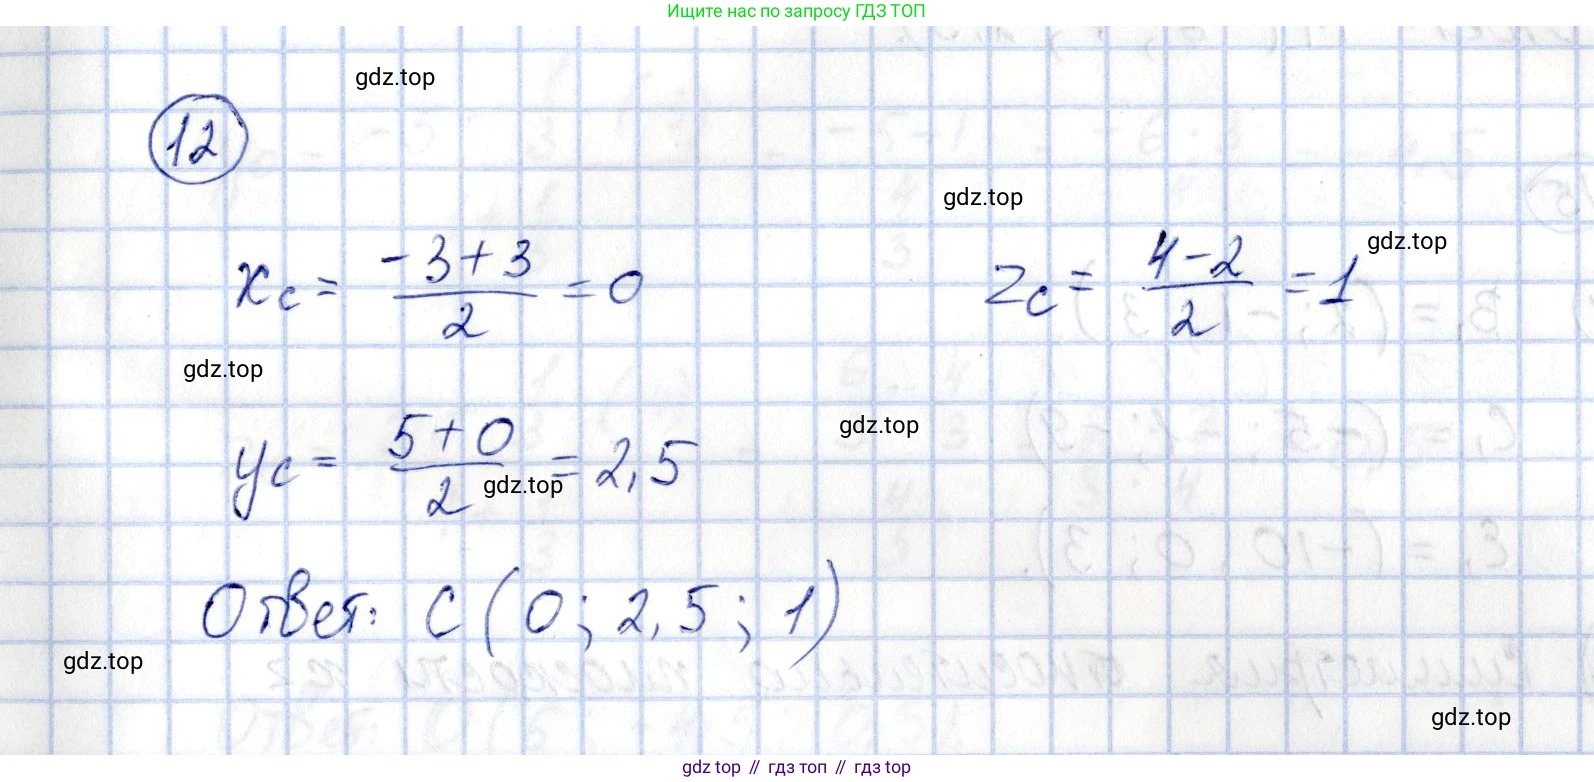 Ищите нас по запросу ГДЗ ТОП
gdz.top
12
gdz.top
x_c = (-3+3)/2 = 0
z_c = (4-2)/2 = 1
gdz.top
gdz.top
gdz.top
y_c = (5+0)/2 = 2,5
gdz.top
Ответ: C (0; 2,5; 1)
gdz.top
gdz.top
gdz top // гдз топ // gdz.top